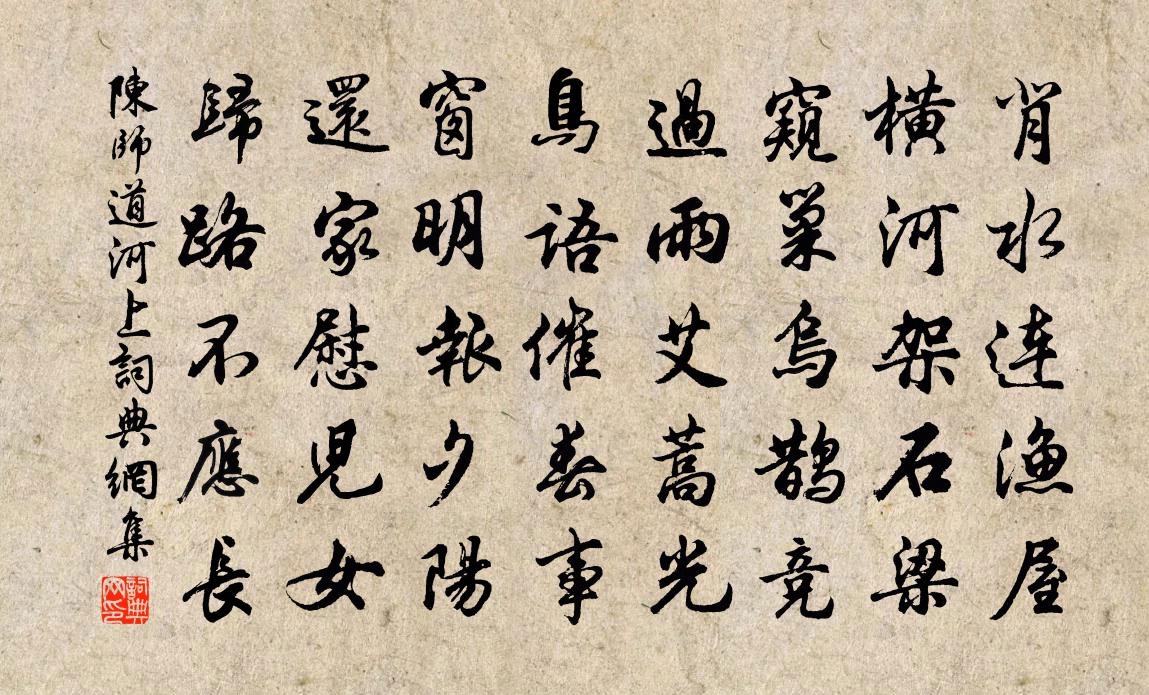 背水連漁屋
橫河架石梁
窺巢烏鵲競
過雨艾蒿光
鳥語催春事
窗明報夕陽
還家慰児女
歸路不應長
陳師道河上詞典網集
詞典网印